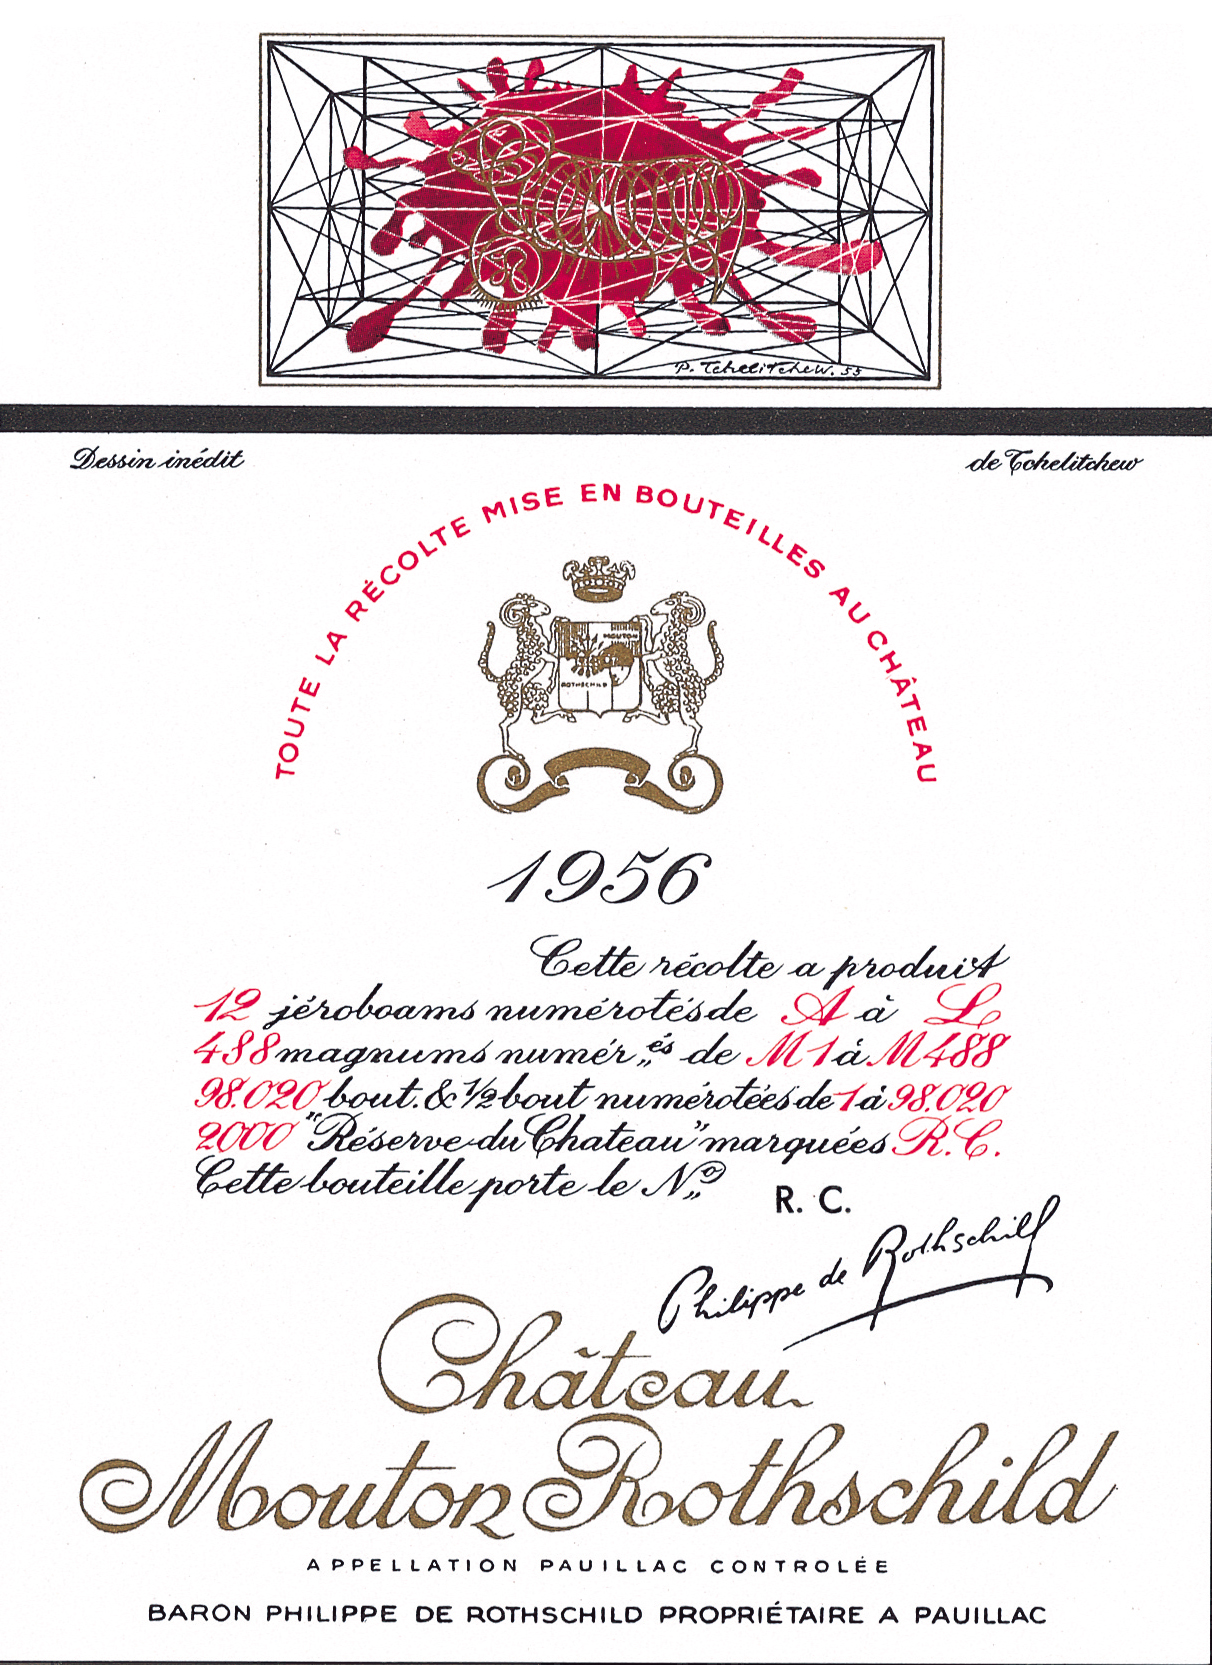 P. Tchelitchew. 55
Dessin inédit
de Tchelitchew
TOUTE LA RÉCOLTE MISE EN BOUTEILLES AU CHÂTEAU
MOUTON
ROTHSCHILD
1956
Cette récolte a produit
12 jéroboams numérotés de A à L
488 magnums numér„és de M1 à M488
98.020 bout. & 1/2 bout numérotées de 1 à 98.020
2000 "Réserve du Chateau" marquées R.C.
Cette bouteille porte le N„o R. C.
Philippe de Rothschild
Château
Mouton Rothschild
APPELLATION PAUILLAC CONTROLÉE
BARON PHILIPPE DE ROTHSCHILD PROPRIÉTAIRE A PAUILLAC